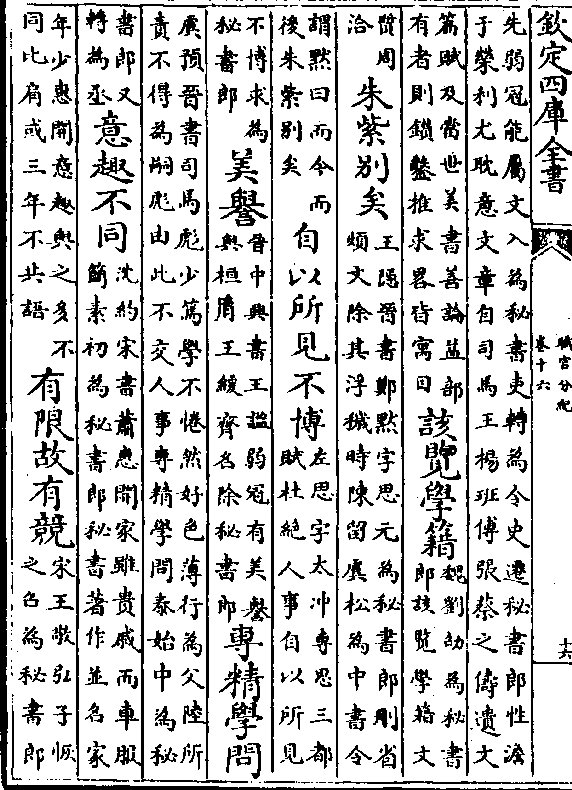 欽定四庫全書
職官分紀
卷十六
十六
先弱冠能屬文入為秘書吏轉為令史遷秘書郎性澹
于榮利尤耽意文章自司馬王楊班傅張蔡之儔遺文
篇賦及當世美書善論益部
有者則鑚鑿推求畧皆寓目
該覽學籍
魏劉劭為秘書
郎該覽學籍文
質周
洽
朱紫别矣
王隱晉書鄭默字思元為秘書郎刪省
煩文除其浮穢時陳留虞松為中書令
謂默曰而今而
後朱紫别矣
自以所見不博
左思字太冲專思三都
賦杜絶人事自以所見
不博求為
秘書郎
美譽
晉中興書王謐弱冠有美譽
與桓胤王綏齊名除秘書郎
專精學問
虞預晉書司馬彪少篤學不倦然好色薄行為父陸所
責不得為嗣彪由此不交人事專精學問泰始中為秘
書郎又
轉為丞
意趣不同
沈約宋書蕭惠開家雖貴戚而車服
簡素初為秘書郎秘書著作並名家
年少惠開意趣與之多不
同比肩或三年不共語
有限故有競
宋王敬弘子恢
之召為秘書郎